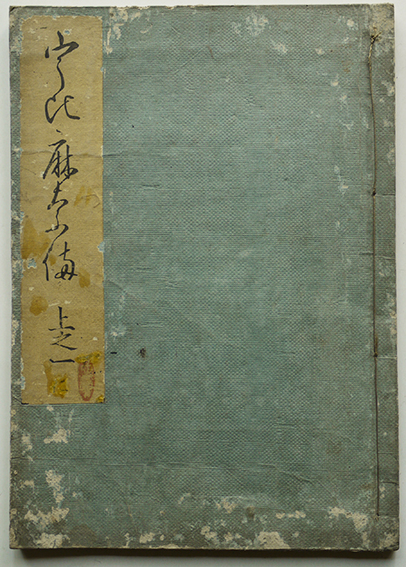 宇比麻奈備 上之一